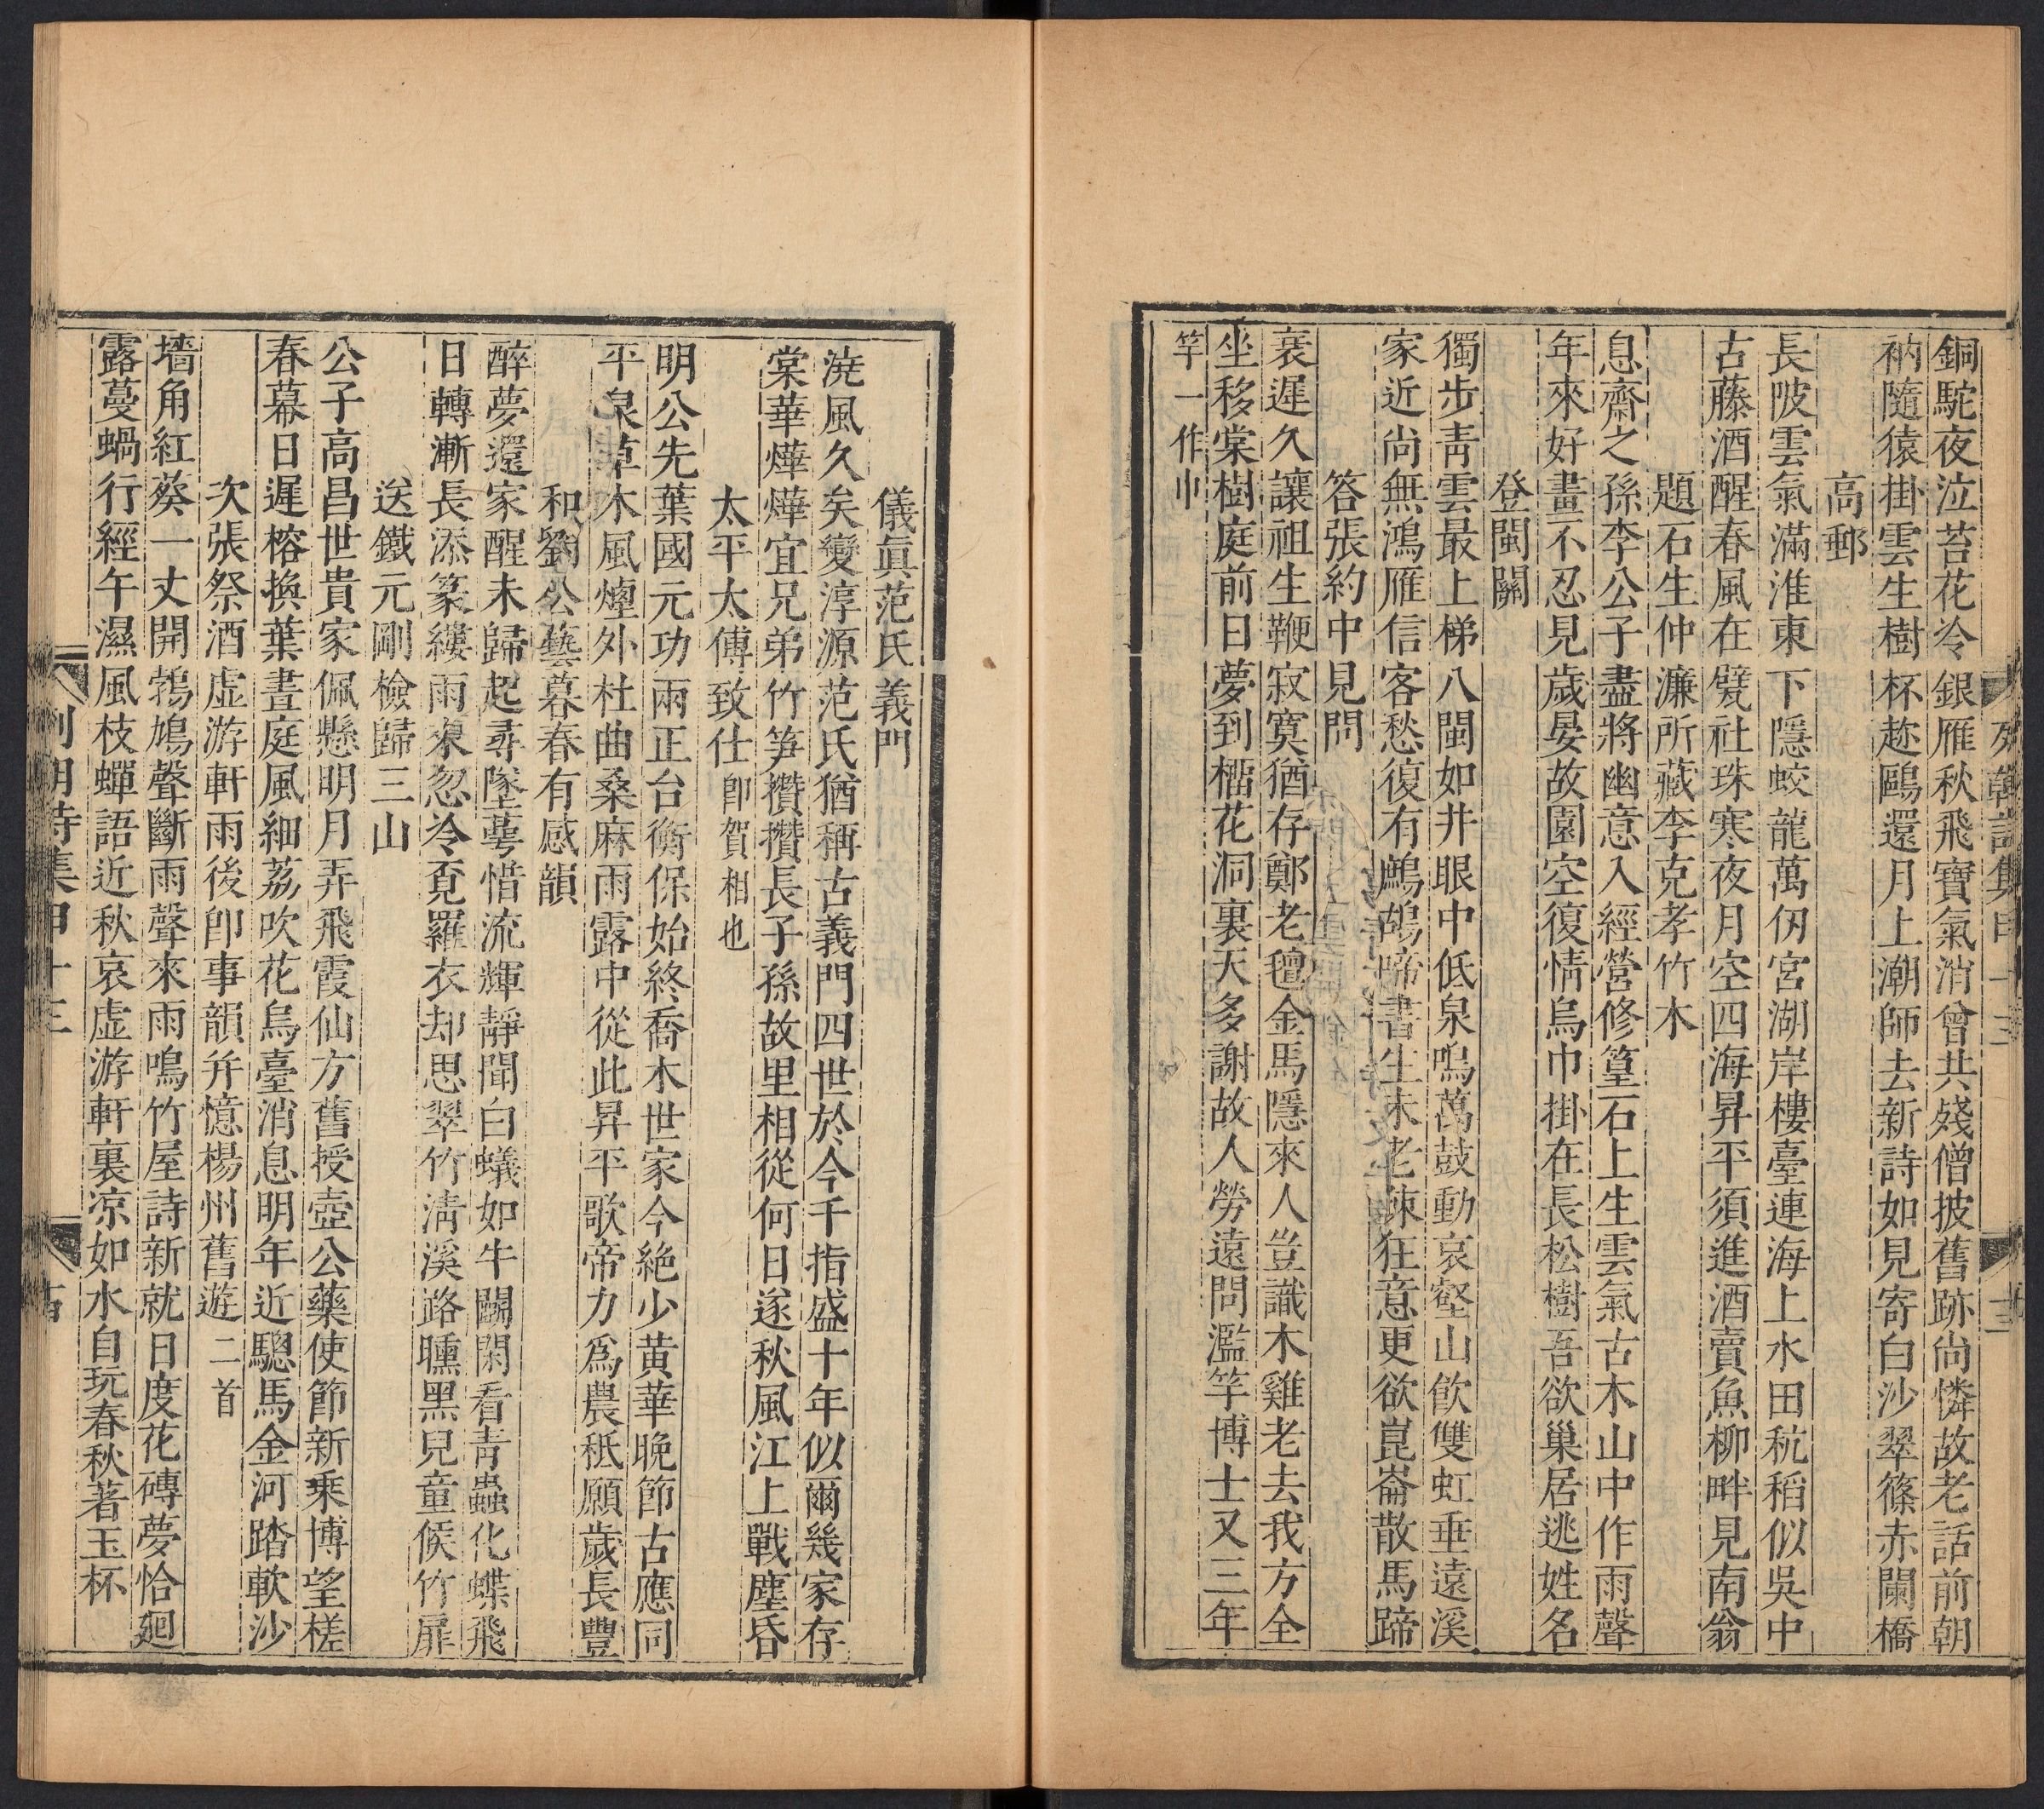 銅駝夜泣苔花冷銀雁秋飛寶氣消曾共殘僧披舊跡尙憐故老話前朝
衲隨猿掛雲生樹杯趂鷗還月上潮師去新詩如見寄白沙翠篠赤闌橋
高郵
長陂雲氣滿淮東下隱蛟龍萬仞宮湖岸樓臺連海上水田秔稻似吳中
古藤酒醒春風在甓社珠寒夜月空四海昇平須進酒賣魚柳畔見南翁
題石生仲濂所藏李克孝竹木
息齋之孫李公子盡將幽意入經營修篁石上生雲氣古木山中作雨聲
年來好畫不忍見歲晏故園空復情烏巾掛在長松樹吾欲巢居逃姓名
登閩關
獨步靑雲最上梯八閩如井眼中低泉鳴萬鼓動哀壑山飮雙虹垂遠溪
家近尙無鴻雁信客愁復有鷓鴣啼書生未老疎狂意更欲崑崙散馬蹄
答張約中見問
衰遲久讓祖生鞭寂寞猶存鄭老氊金馬隱來人豈識木雞老去我方全
坐移棠樹庭前日夢到橊花洞裏天多謝故人勞遠問濫竽博士又三年
竿一作巾
儀眞范氏義門
澆風久矣變淳源范氏猶稱古義門四世於今千指盛十年似爾幾家存
棠華燁燁宜兄弟竹笋攢攢長子孫故里相從何日遂秋風江上戰塵昏
太平太傅致仕卽賀相也
明公先葉國元功兩正台衡保始終喬木世家今絶少黄華晚節古應同
平泉草木風煙外杜曲桑麻雨露中從此昇平歌帝力爲農秖願歲長豐
和劉公藝暮春有感韻
醉夢還家醒未歸起尋墜蕚惜流輝靜聞白蟻如牛鬭閑看靑蟲化蝶飛
日轉漸長添篆縷雨來忽冷覔羅衣却思翠竹淸溪路曛黑兒童候竹扉
送鐵元剛檢歸三山
公子高昌世貴家佩懸明月弄飛霞仙方舊授壺公藥使節新乘博望槎
春幕日遲榕換葉晝庭風細荔吹花烏臺消息明年近驄馬金河踏軟沙
次張祭酒虚游軒雨後卽事韻幷憶楊州舊遊二首
墻角紅葵一丈開鵓鳩聲斷雨聲來雨鳴竹屋詩新就日度花磚夢恰廻
露蔓蝸行經午濕風枝蟬語近秋哀虚游軒裏凉如水自玩春秋著玉杯